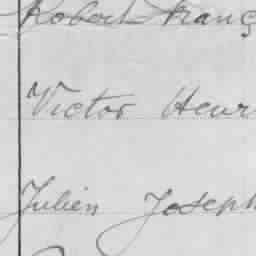 Robert Franç
Victor Henr
Julien Joseph